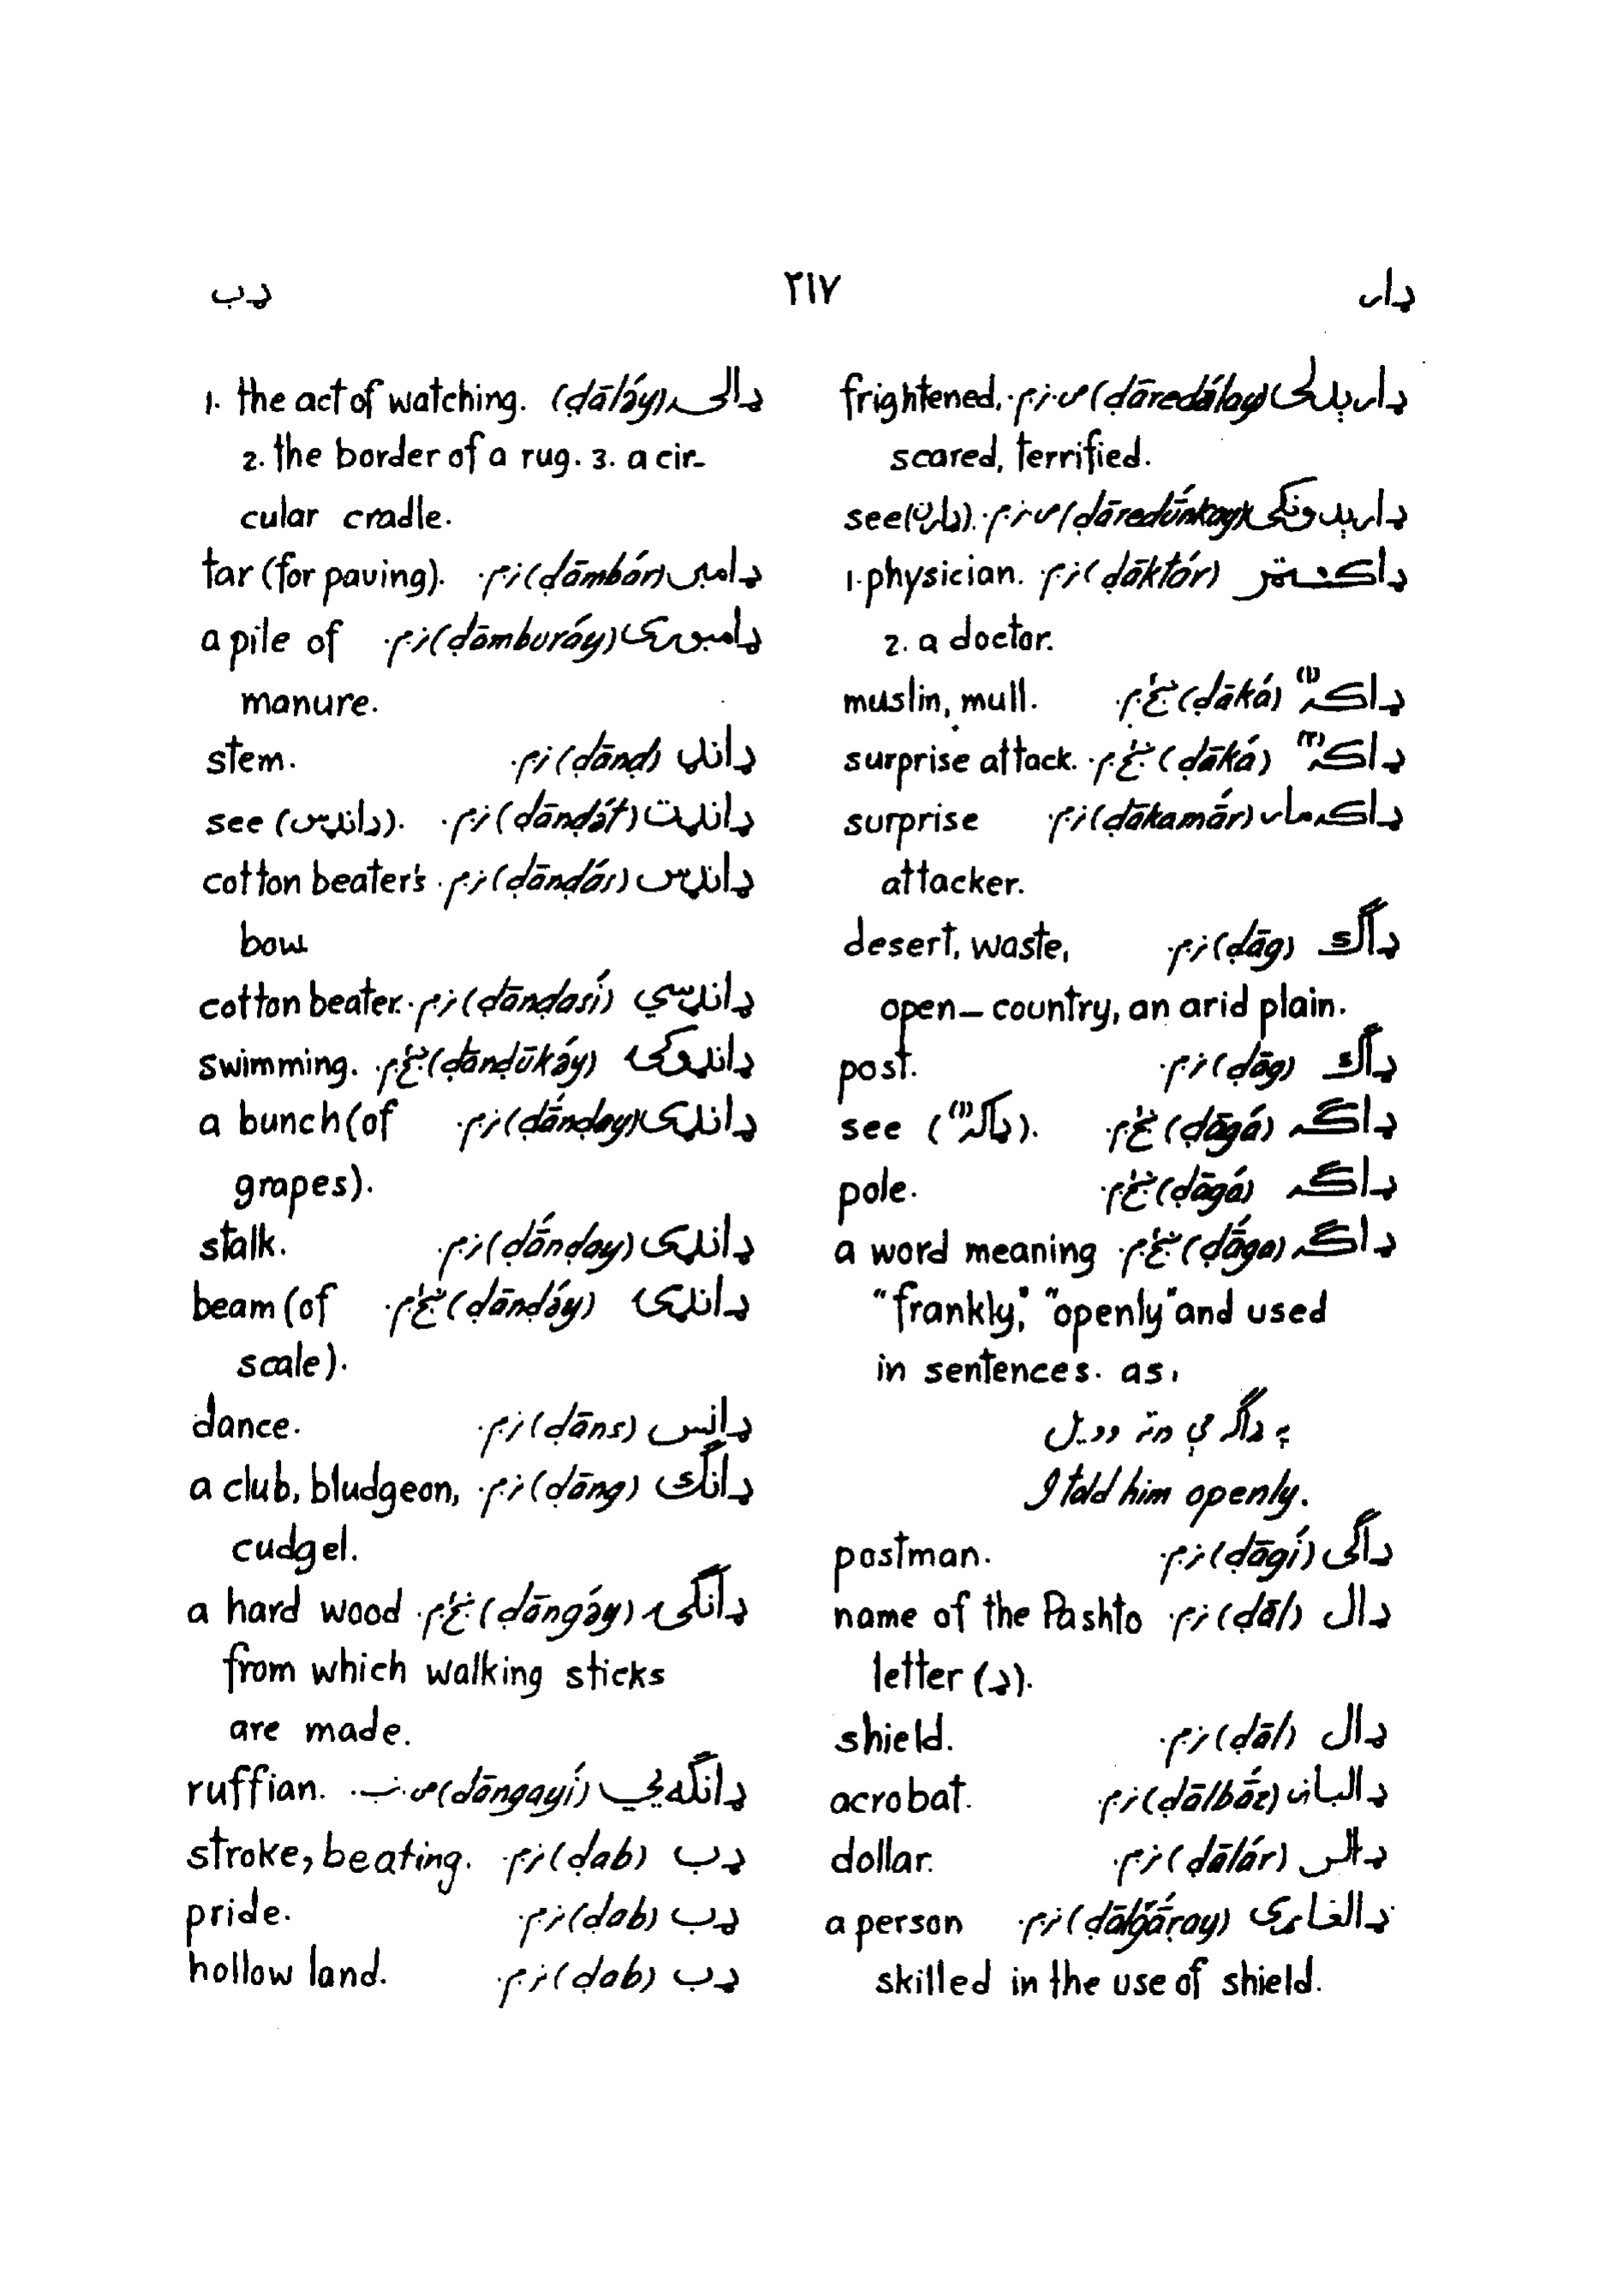 ډار ٢١٧ ډب
ډارېدلی (ḍāredə́lay) ص.نر.م. frightened,
scared, terrified.
ډارېدونکی (ḍāredū́nkay) ص.نر.م. see (ډارن).
ډاکټر (ḍākṭár) نر.م. 1. physician.
2. a doctor.
ډاکه (١) (ḍāká) ښځ.م. muslin, mull.
ډاکه (٢) (ḍāká) ښځ.م. surprise attack.
ډاکه مار (ḍākamā́r) نر.م. surprise
attacker.
ډاګ (ḍāg) نر.م. desert, waste,
open — country, an arid plain.
ډاګ (ḍāg) نر.م. post.
ډاګه (ḍāgá) ښځ.م. see (ډاکه (١)).
ډاګه (ḍāgá) ښځ.م. pole.
ډاګه (ḍā́ga) ښځ.م. a word meaning
"frankly," "openly" and used
in sentences. as,
په ډاګه مې ورته وويل
I told him openly.
ډاګی (ḍāgí) نر.م. postman.
ډال (ḍāl) نر.م. name of the Pashto
letter (ډ).
ډال (ḍāl) نر.م. shield.
ډالباز (ḍālbā́z) نر.م. acrobat.
ډالر (ḍālár) نر.م. dollar.
ډالغاړی (ḍālğā́ṛay) نر.م. a person
skilled in the use of shield.
ډالۍ (ḍālə́y) 1. the act of watching.
2. the border of a rug. 3. a cir-
cular cradle.
ډامبر (ḍāmbár) نر.م. tar (for paving).
ډامبوری (ḍāmburáy) نر.م. a pile of
manure.
ډانډ (ḍānḍ) نر.م. stem.
ډانډټ (ḍānḍə́ṭ) نر.م. see (ډانډس).
ډانډس (ḍānḍás) نر.م. cotton beater's
bow
ډانډسي (ḍānḍasí) نر.م. cotton beater.
ډانډوکۍ (ḍānḍūkə́y) ښځ.م. swimming.
ډانډی (ḍā́nḍay) نر.م. a bunch (of
grapes).
ډانډی (ḍā́nḍay) نر.م. stalk.
ډانډۍ (ḍānḍə́y) ښځ.م. beam (of
scale).
ډانس (ḍāns) نر.م. dance.
ډانګ (ḍāng) نر.م. a club, bludgeon,
cudgel.
ډانګۍ (ḍāngə́y) ښځ.م. a hard wood
from which walking sticks
are made.
ډانګه يي (ḍāngayí) ruffian.
ډب (ḍab) نر.م. stroke, beating.
ډب (ḍab) نر.م. pride.
ډب (ḍab) نر.م. hollow land.